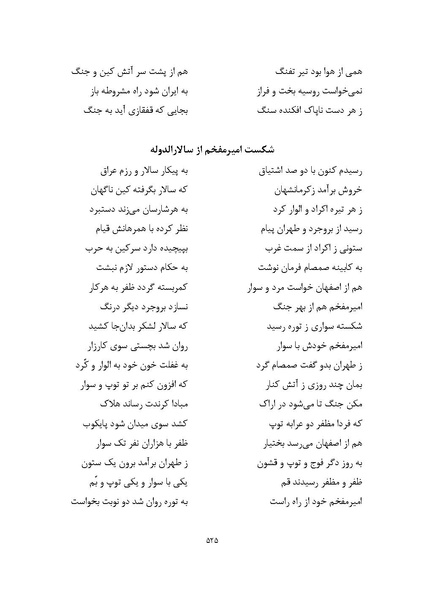 همی از هوا بود تیر تفنگ هم از پشت سر آتش کین و جنگ
نمی‌خواست روسیه بخت و فراز به ایران شود راه مشروطه باز
ز هر دست ناپاک افکنده سنگ بجایی که قفقازی آید به جنگ
شکست امیرمفخم از سالارالدوله
رسیدم کنون با دو صد اشتیاق به پیکار سالار و رزم عراق
خروش برآمد زکرمانشهان که سالار بگرفته کین ناگهان
ز هر تیره اکراد و الوار کرد به هرشارسان می‌زند دستبرد
رسید از بروجرد و طهران پیام نظر کرده با همرهانش قیام
ستونی ز اکراد از سمت غرب بپیچیده دارد سرکین به حرب
به کابینه صمصام فرمان نوشت به حکام دستور لازم نبشت
هم از اصفهان خواست مرد و سوار کمربسته گردد ظفر به هرکار
امیرمفخم هم از بهر جنگ نسازد بروجرد دیگر درنگ
شکسته سواری ز توره رسید که سالار لشکر بدان‌جا کشید
امیرمفخم خودش با سوار روان شد بچستی سوی کارزار
ز طهران بدو گفت صمصام گرد به غفلت خون خود به الوار و کُرد
بمان چند روزی ز آتش کنار که افزون کنم بر تو توپ و سوار
مکن جنگ تا می‌شود در اراک مبادا کرندت رساند هلاک
که فردا مظفر دو عرابه توپ کشد سوی میدان شود پایکوب
هم از اصفهان می‌رسد بختیار ظفر با هزاران نفر تک سوار
به روز دگر فوج و توپ و قشون ز طهران برآمد برون یک ستون
ظفر و مظفر رسیدند قم یکی با سوار و یکی توپ و بُم
امیرمفخم خود از راه راست به توره روان شد دو نوبت بخواست
۵۲۵